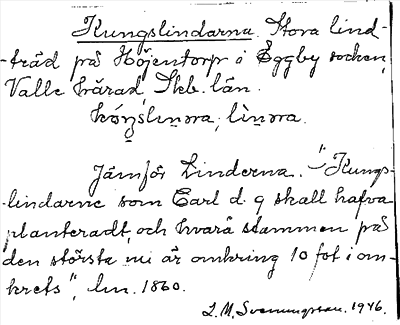 Kungslindarna. Stora lind-
-träd på Höjentorp i Eggby socken,
Valle härad, Skb. län.
Jämför Linderna. "Kungs-
-lindarne som Carl d. 9 skall hafva
planteradt, och hvara stammen på
den största nu är omkring 10 fot i om-
krets", Lm. 1860.
L. M. Svenungsson. 1946.